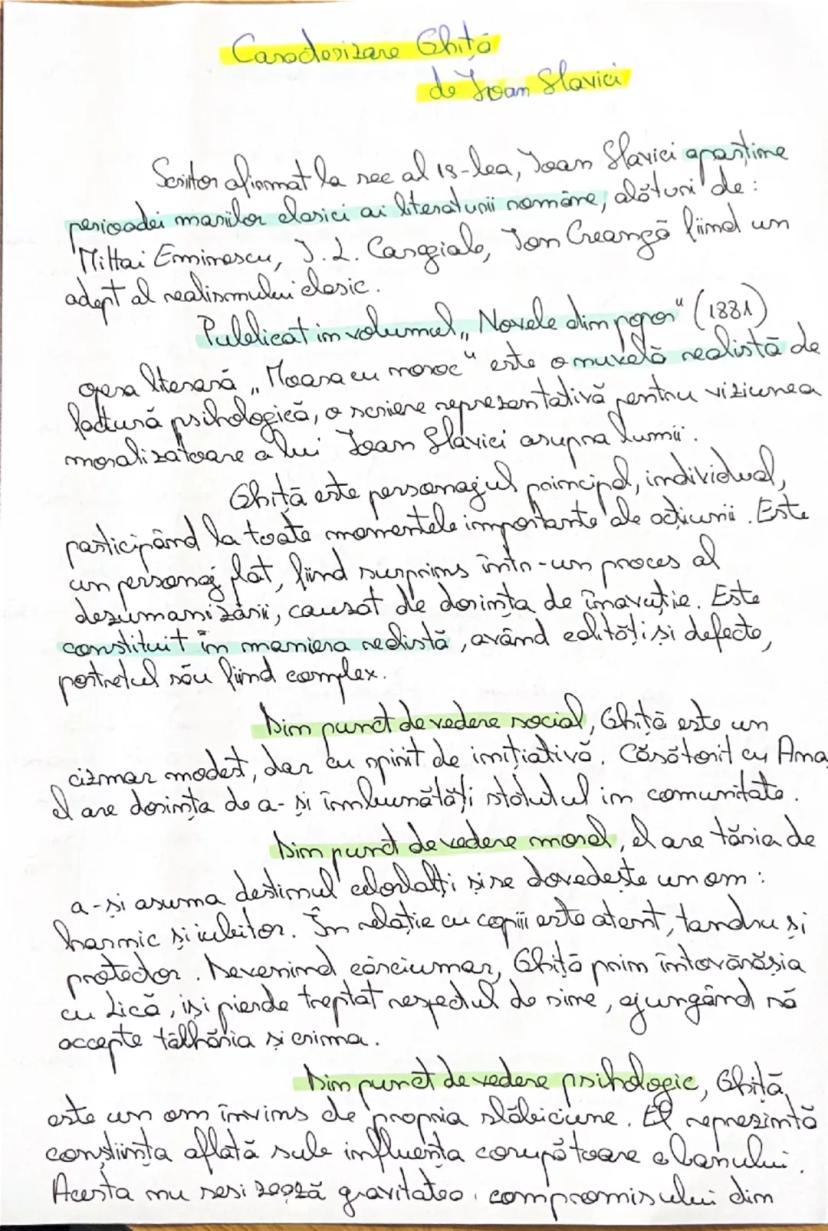 Caracterizare Ghiță
de Ioan Slavici
Scriitor afirmat la sec al 19-lea, Ioan Slavici aparține
perioadei marilor clasici ai literaturii române, alături de:
Mihai Eminescu, I. L. Caragiale, Ion Creangă fiind un
adept al realismului clasic.
Publicat in volumul „Novele din popor" (1881)
opera literară „Moara cu noroc" este o nuvelă realistă de
factură psihologică, o scriere reprezentativă pentru viziunea
moralizatoare a lui Ioan Slavici asupra lumii.
Ghiță este personajul principal, individual,
participând la toate momentele importante ale acțiunii. Este
un personaj plat, fiind surprins într-un proces al
dezumanizării, cauzat de dorința de înavuție. Este
constituit în maniera realistă, având calități și defecte,
portretul său fiind complex.
Din punct de vedere social, Ghiță este un
cizmar modest, dar cu spirit de inițiativă. Căsătorit cu Ana,
el are dorința de a-și îmbunătăți statutul in comunitate.
Din punct de vedere moral, el are tăria de
a-și asuma destinul celorlalți si se dovedește un om:
harnic și iubitor. În relație cu copiii este atent, tandru și
protector. Devenind cârciumar, Ghiță prin întovărășia
cu Lică, iși pierde treptat respectul de sine, ajungând să
accepte tâlhăria și crima.
Din punct de vedere psihologic, Ghiță
este un om învins de propria slăbiciune. El reprezintă
conștiința aflată sub influența corupătoare a banului.
Acesta nu sesizează gravitatea compromisului din